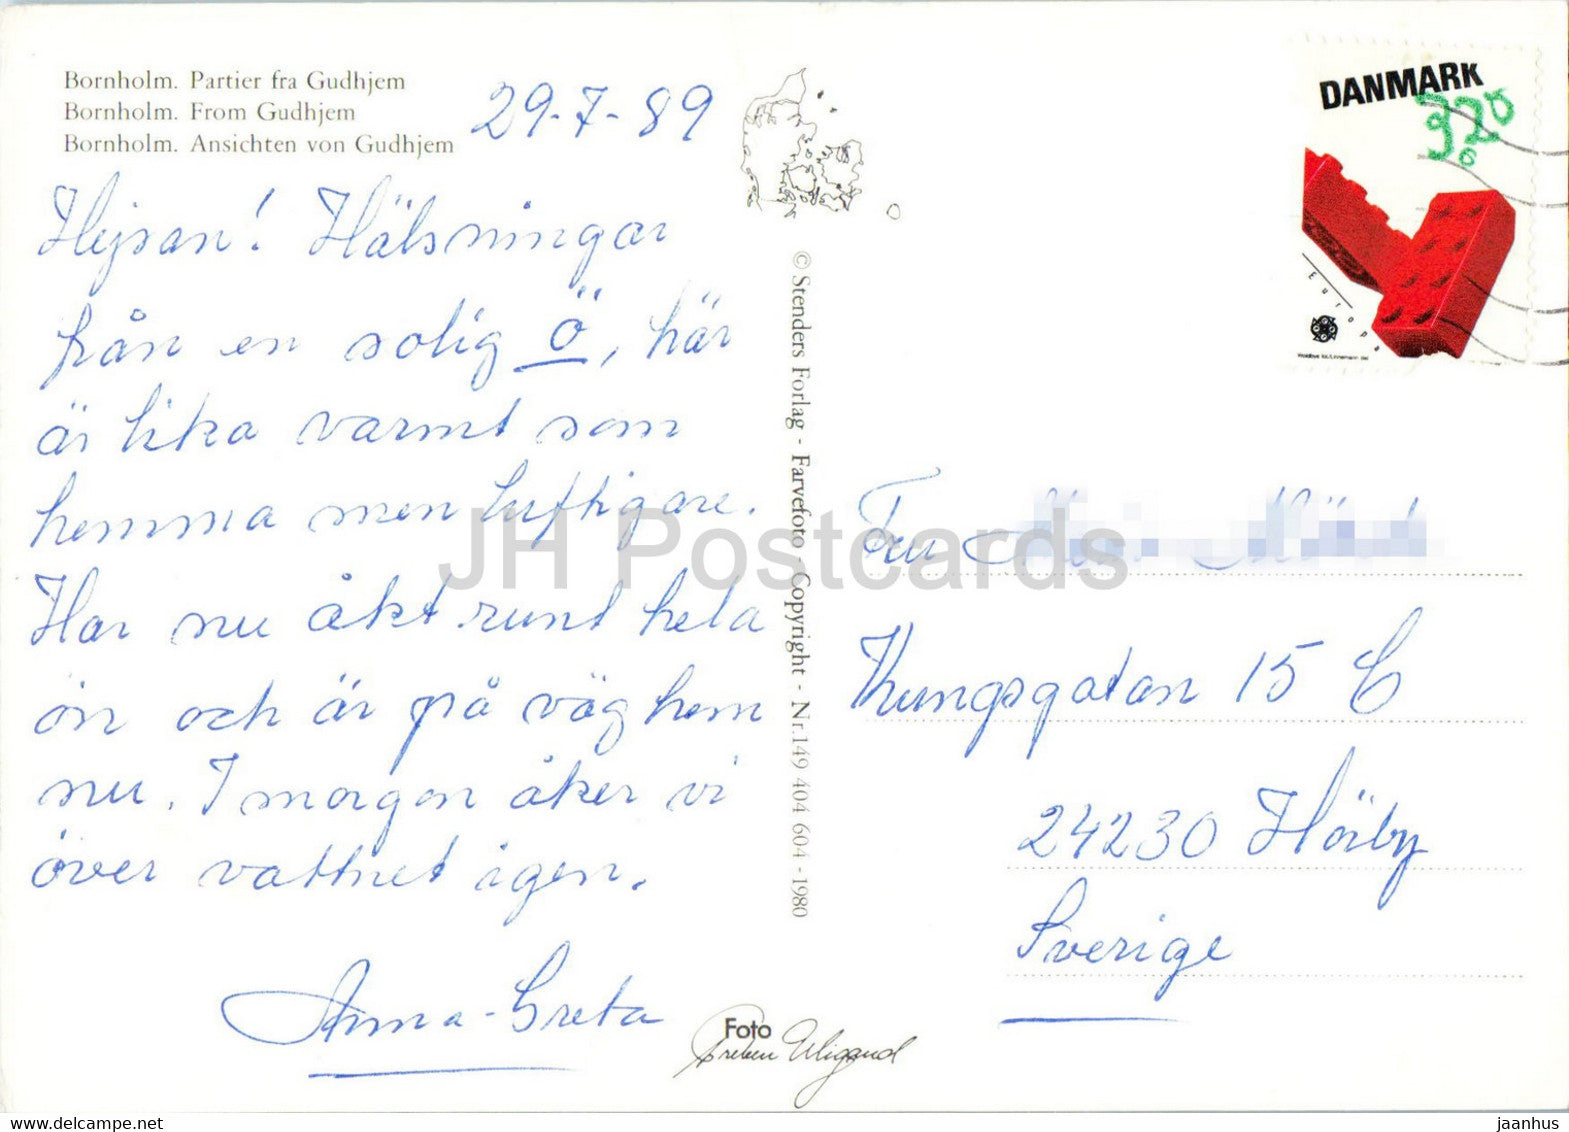 Bornholm. Partier fra Gudhjem
Bornholm. From Gudhjem
Bornholm. Ansichten von Gudhjem
29-7-89
Hejsan! Hälsningar
från en solig Ö, här
är lika varmt som
hemma men luftigare.
Har nu åkt runt hela
ön och är på väg hem
nu. I morgon åker vi
över vattnet igen.
Anna-Greta
© Stenders Forlag - Farvefoto - Copyright - Nr. 149 404 604 - 1980
Foto
Preben Wigand
DANMARK
3.20
Europa
Fru
Kungsgatan 15 C
24230 Hörby
Sverige
JH Postcards
delcampe.net
jaanhus